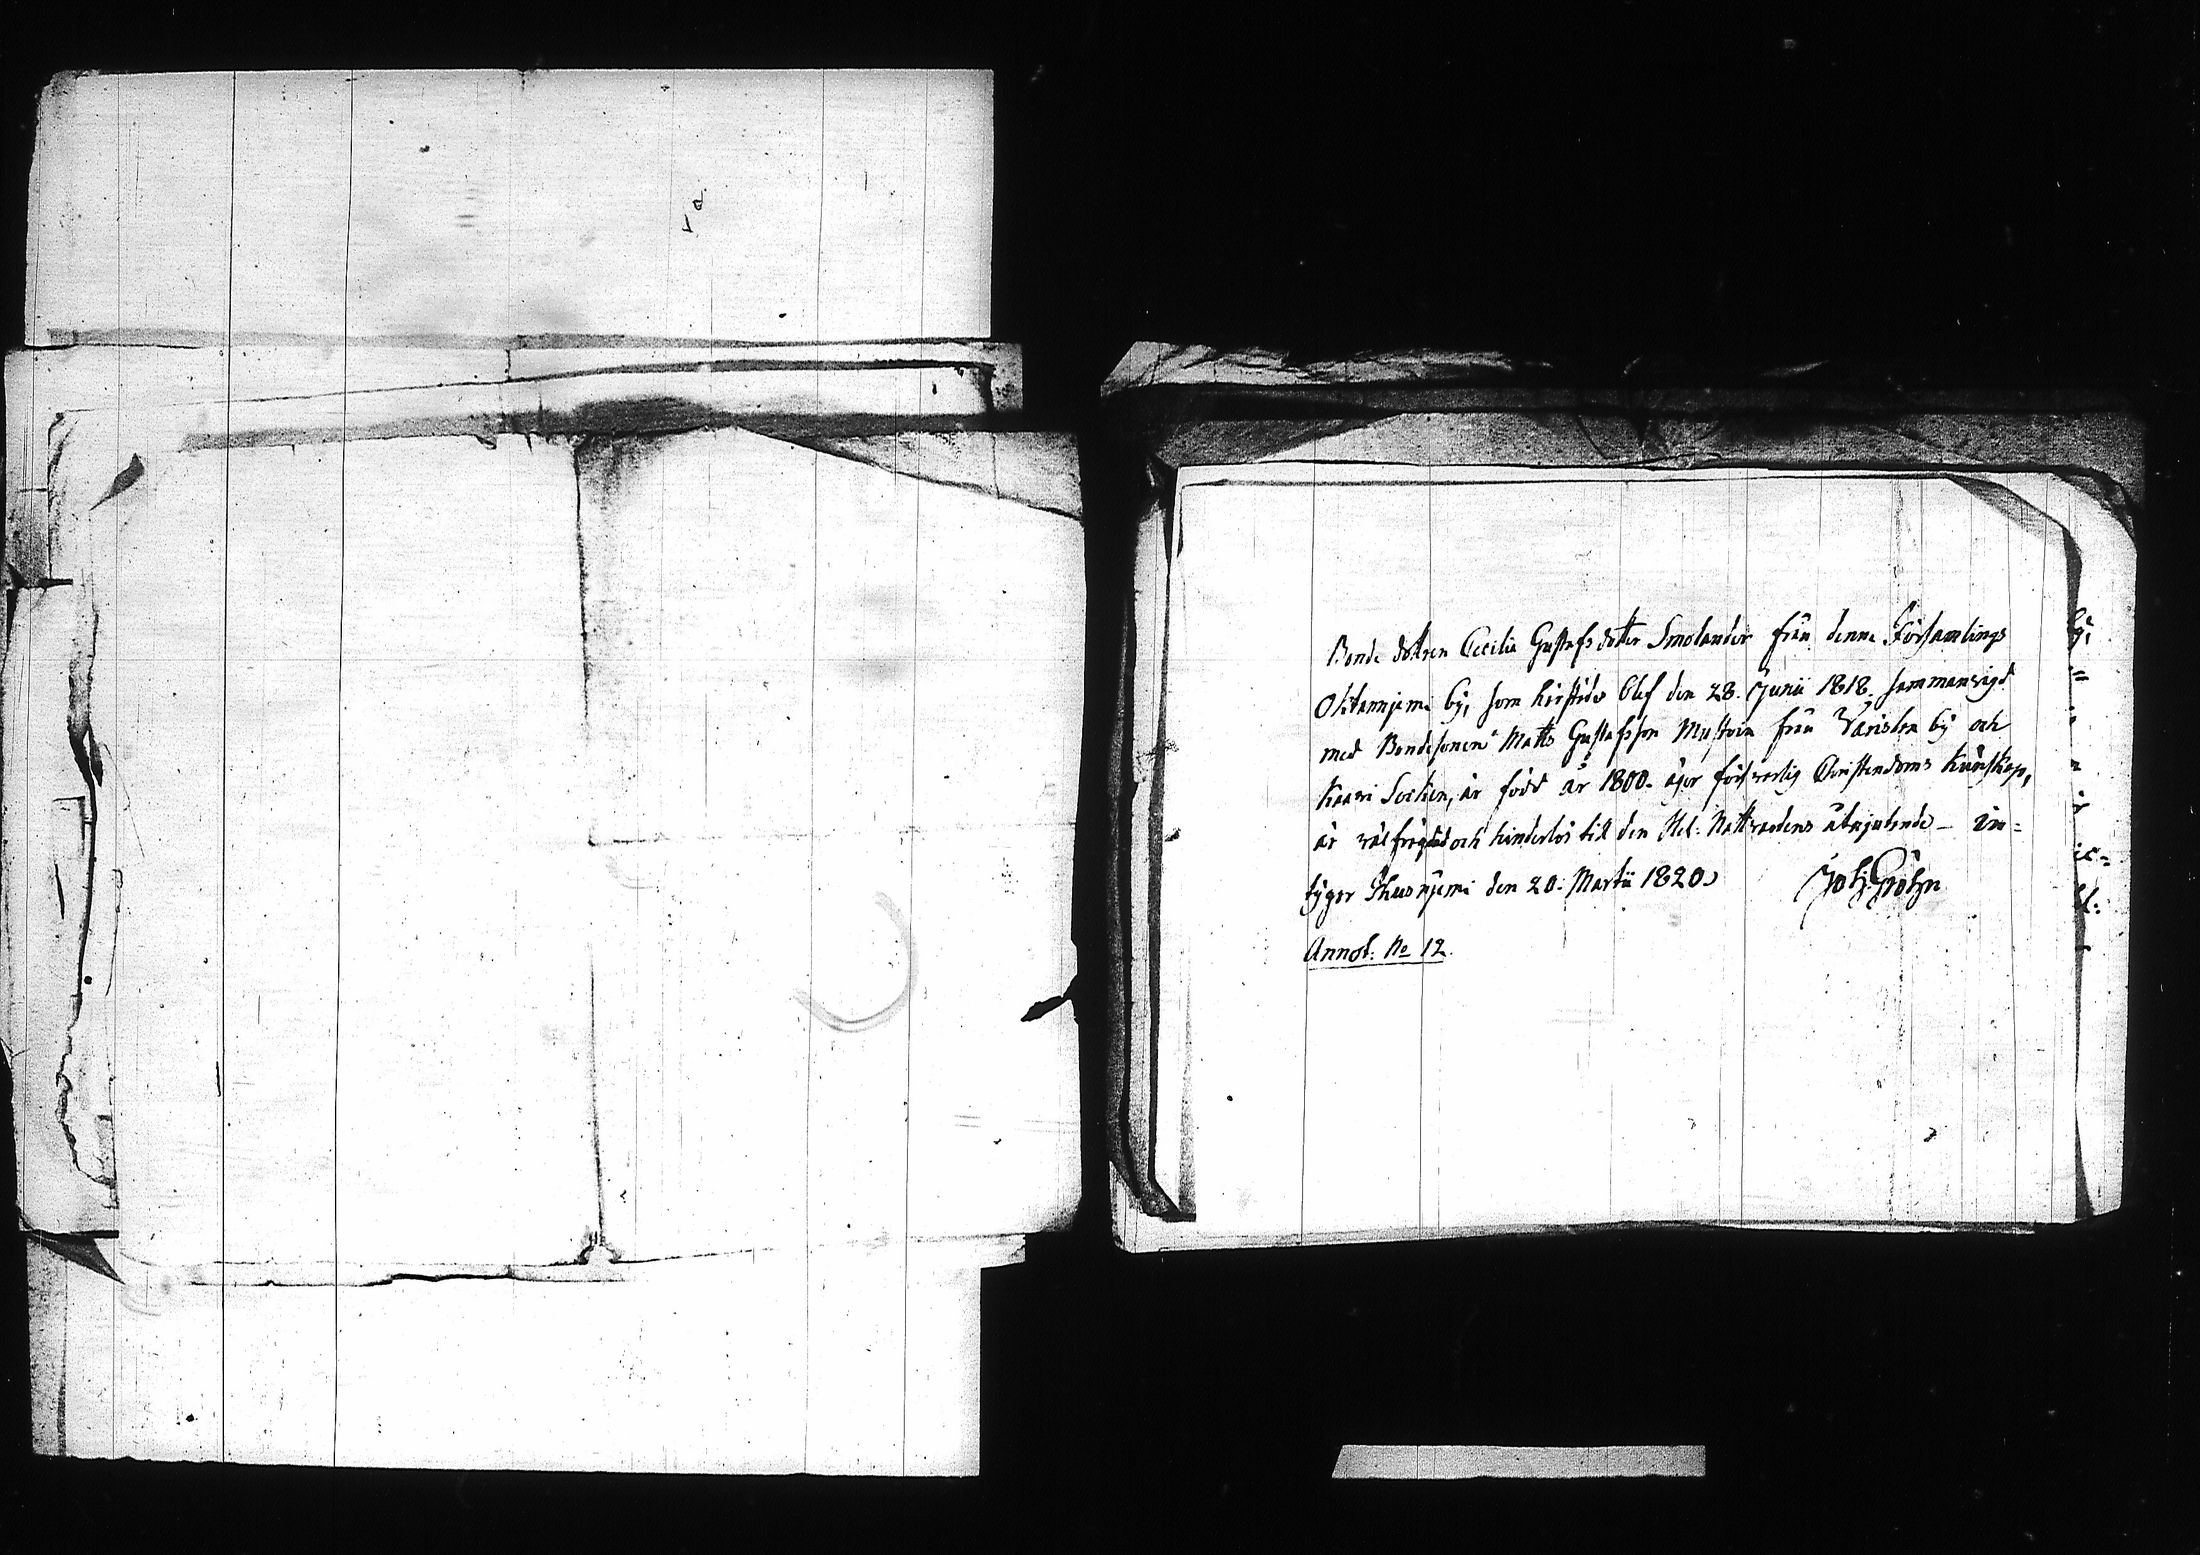 Bonde dottren Cecilia Gustafsdotter Smolander från denne Församlings
Oktannjemi by, som härstädes blef den 28. Junii 1818. sammanvigd
med Bondesonen Matts Gustafsson Mustoin från Varislax by och
Kaavi Socken, är född år 1800. äger försvarlig Christendoms Kunskap,
är välfrägdad och hinderlös til den Hel: Nattvardens åtnjutande – in=
tygar Thusnjemi den 20. Martii 1820.
Joh: Gröhn
Annot: No 12.
by,